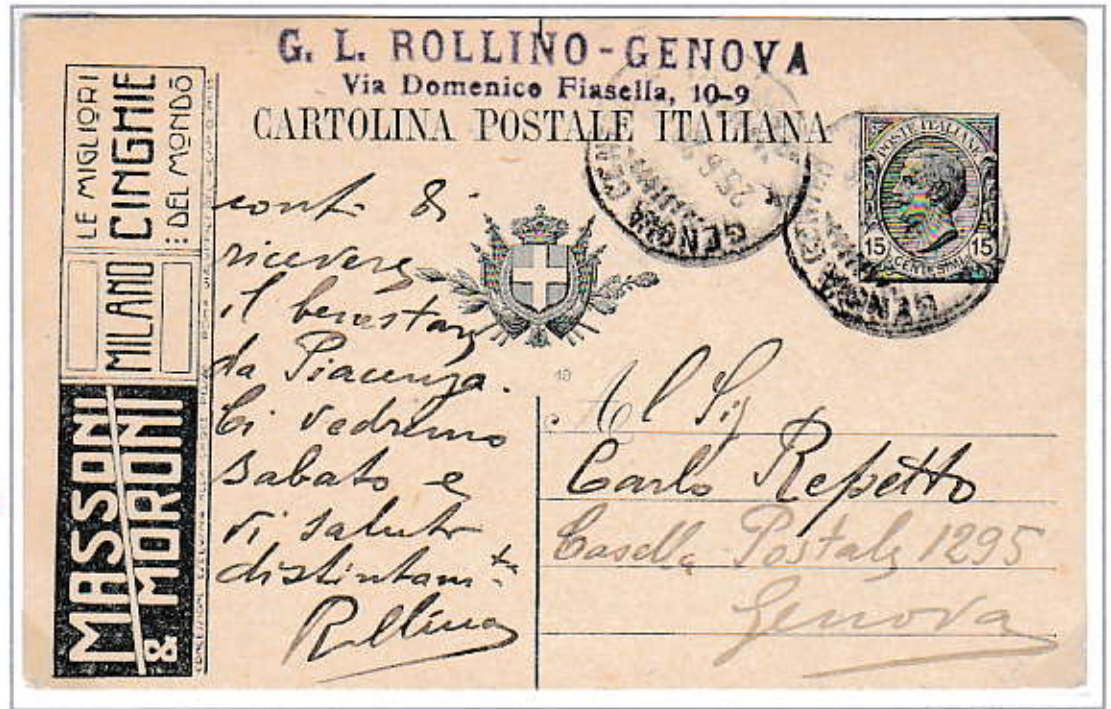 G. L. ROLLINO - GENOVA
Via Domenico Fiasella, 10-9
CARTOLINA POSTALE ITALIANA
LE MIGLIORI
CINGHIE
DEL MONDO
MILANO
MASSONI
& MORONI
POSTE ITALIANE
15 CENTESIMI 15
GENOVA
GENOVA
ricevere
il benestare
da Piacenza.
Ci vedremo
sabato e
vi saluto
distintamte
Rollino
Al Sig
Carlo Repetto
Casella Postale 1295
Genova